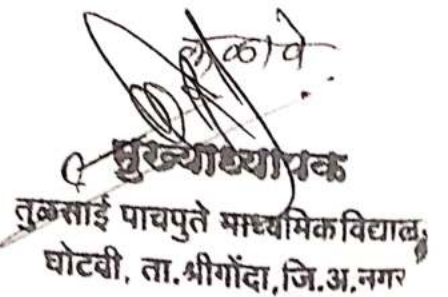 कळावे
मुख्याध्यापक
तुळसाई पाचपुते माध्यमिक विद्यालय,
घोटवी, ता.श्रीगोंदा,जि.अ.नगर